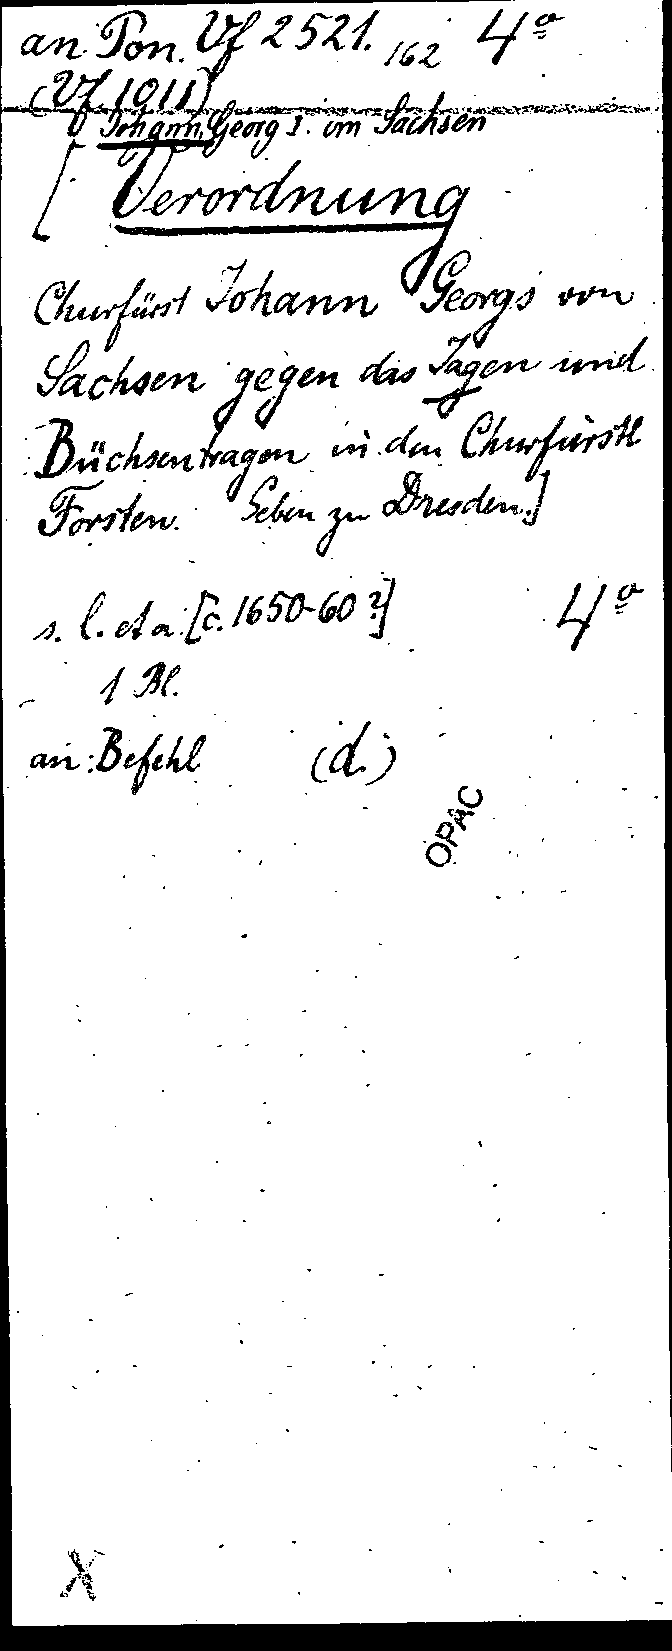 an Pon. Vf 2521. 162 4º
(Vf. 1011)
Johann Georg I. von Sachsen
[Verordnung
Churfürst Johann Georgs von
Sachsen gegen das Jagen und
Büchsentragen in den Churfürstl
Forsten. Geben zu Dresden.]
s. l. et a. [c. 1650-60?] 4º
1 Bl.
an: Befehl (d.)
OPAC
X